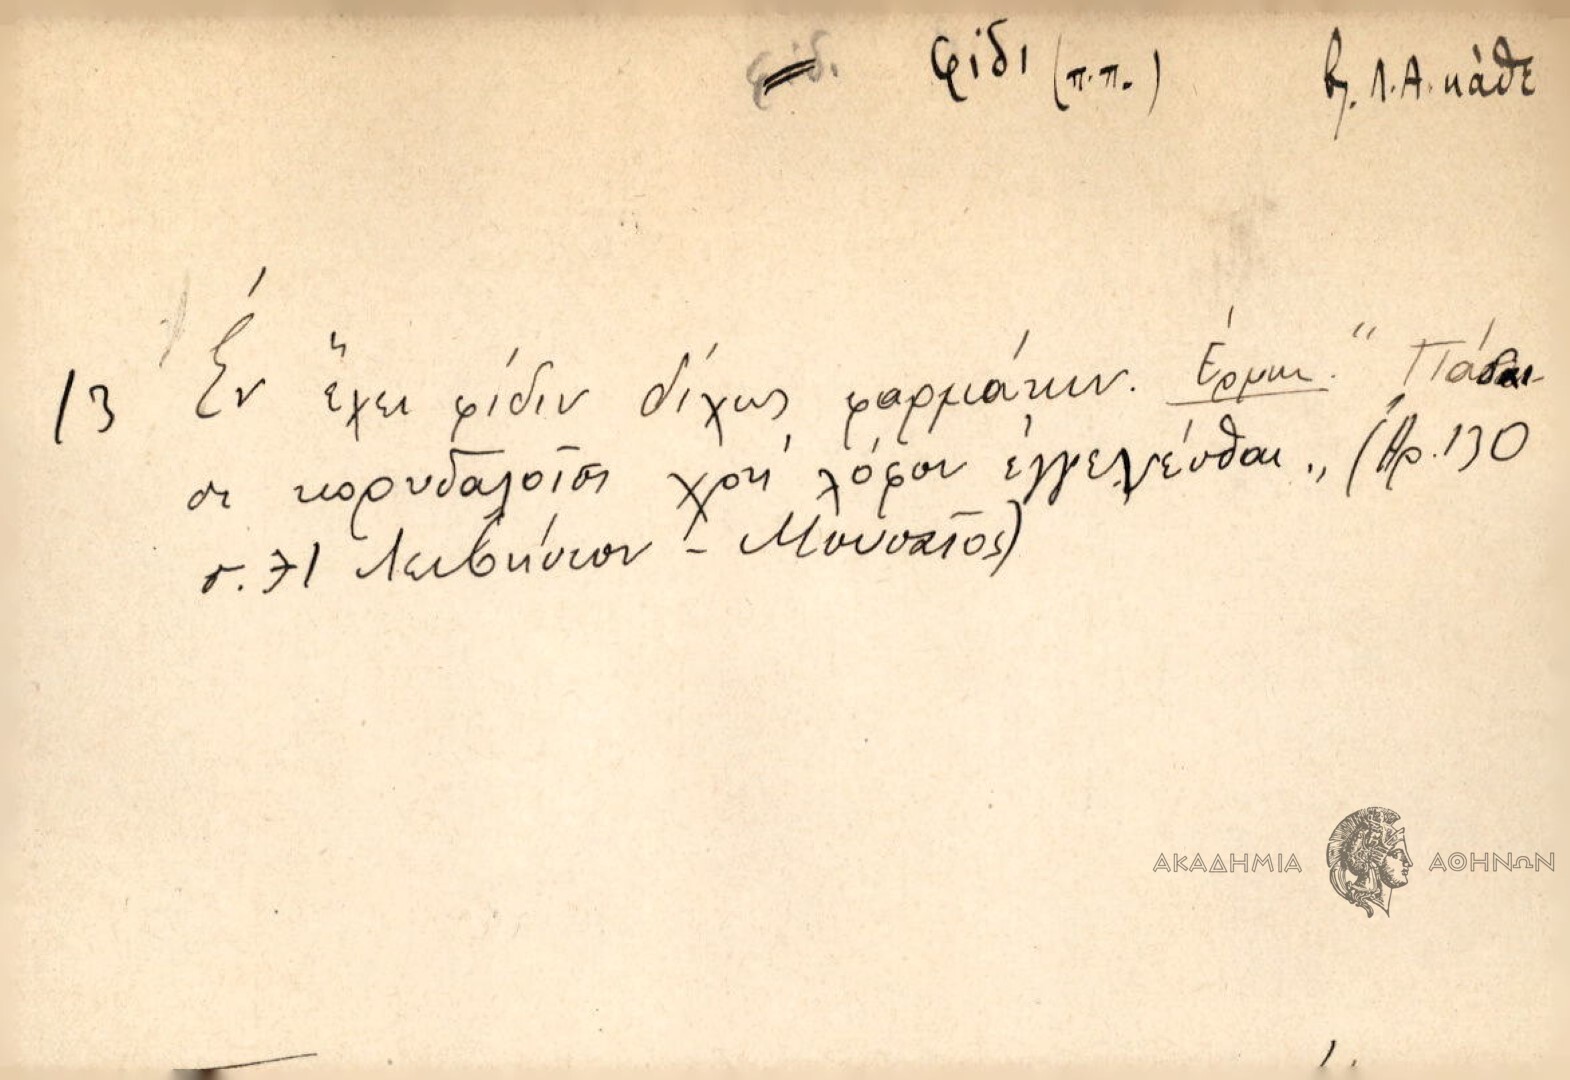 φίδι (π.π.) βλ. Λ.Α. κάθε
13 Ἐν ἔχει φίδιν δίχως φαρμάκιν. Ἑρμ. " Πάσαι-
σι κορυδαλοῖσι χρὴ λόφον ἐγγενέσθαι „ (Ἀρ. 130
σ. 71 Λειβήσιον - Μουσαῖος)
ΑΚΑΔΗΜΙΑ ΑΘΗΝΩΝ